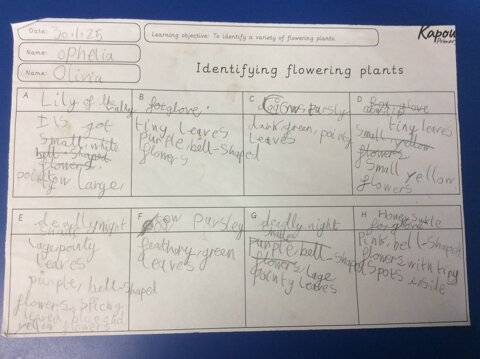 Date: 30.1.25
Learning objective: To identify a variety of flowering plants.
Kapow
Primary
Name: Ophelia
Name: Olivia
Identifying flowering plants
A
Lily of the
Valley
It's got
Small, white
bell-shaped
flowers
large,
B
foxglove.
tiny leaves
purple, bell-shaped
flowers
C
Cow parsly
dark, green, pointy
leaves
D
fox glove
tiny leves
Small yellow
flowers
Small yellow
flowers
E
deadly night
Lage, pointy
leaves
purple, bell-shaped
flowers, spicky
leaves,
yellow flowers
F
cow parsley
feathory, green
leaves
G
deadly night
shade
purple, bell-shaped
flowers, lage
pointy leaves
H
Honeysukle
foxglove
Pink, bell-shaped
flowers with tiny
spots inside